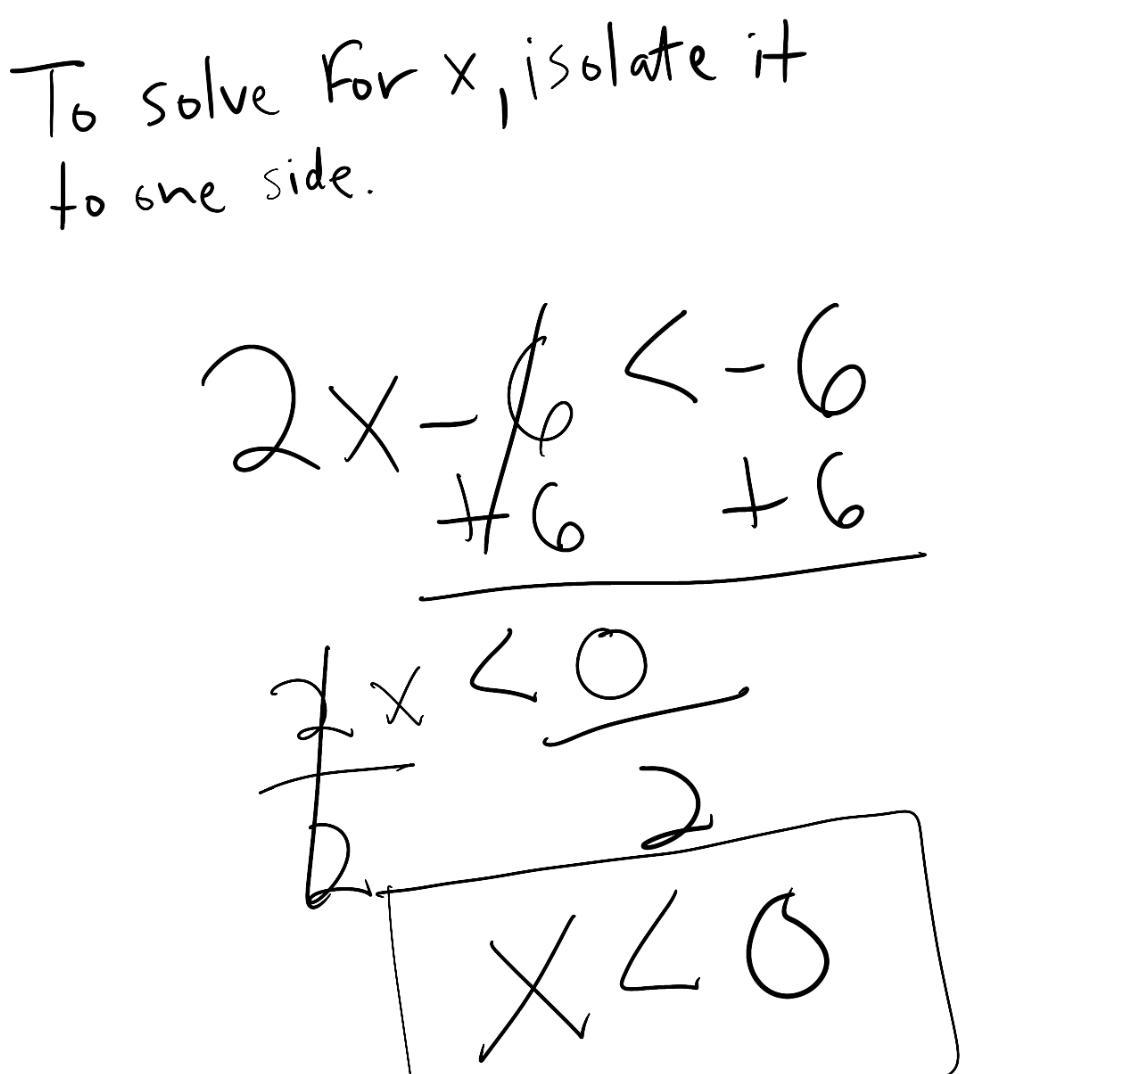 To solve for x, isolate it
to one side.
2x - 6 < -6
+6 +6
2x < 0
2 2
x < 0